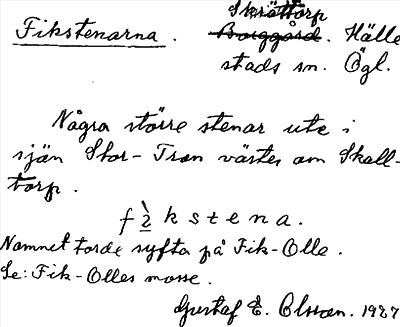 Skröttorp
Fikstenarna. Borggård. Hälle
stads sn. Ögl.
Några större stenar ute i
sjön Stor-Tron väster om Skall-
torp.
f ì k s t e n a.
Namnet torde syfta på Fik-Olle.
Se: Fik-Olles mosse.
Gustaf E. Olsson. 1927